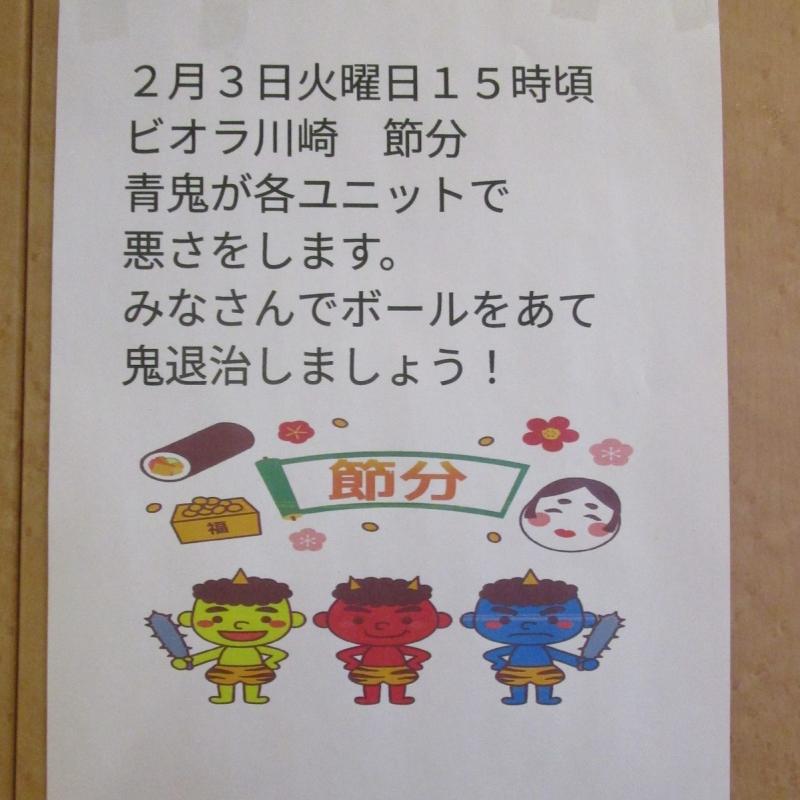 ２月３日火曜日１５時頃
ビオラ川崎　節分
青鬼が各ユニットで
悪さをします。
みなさんでボールをあて
鬼退治しましょう！
節分
福